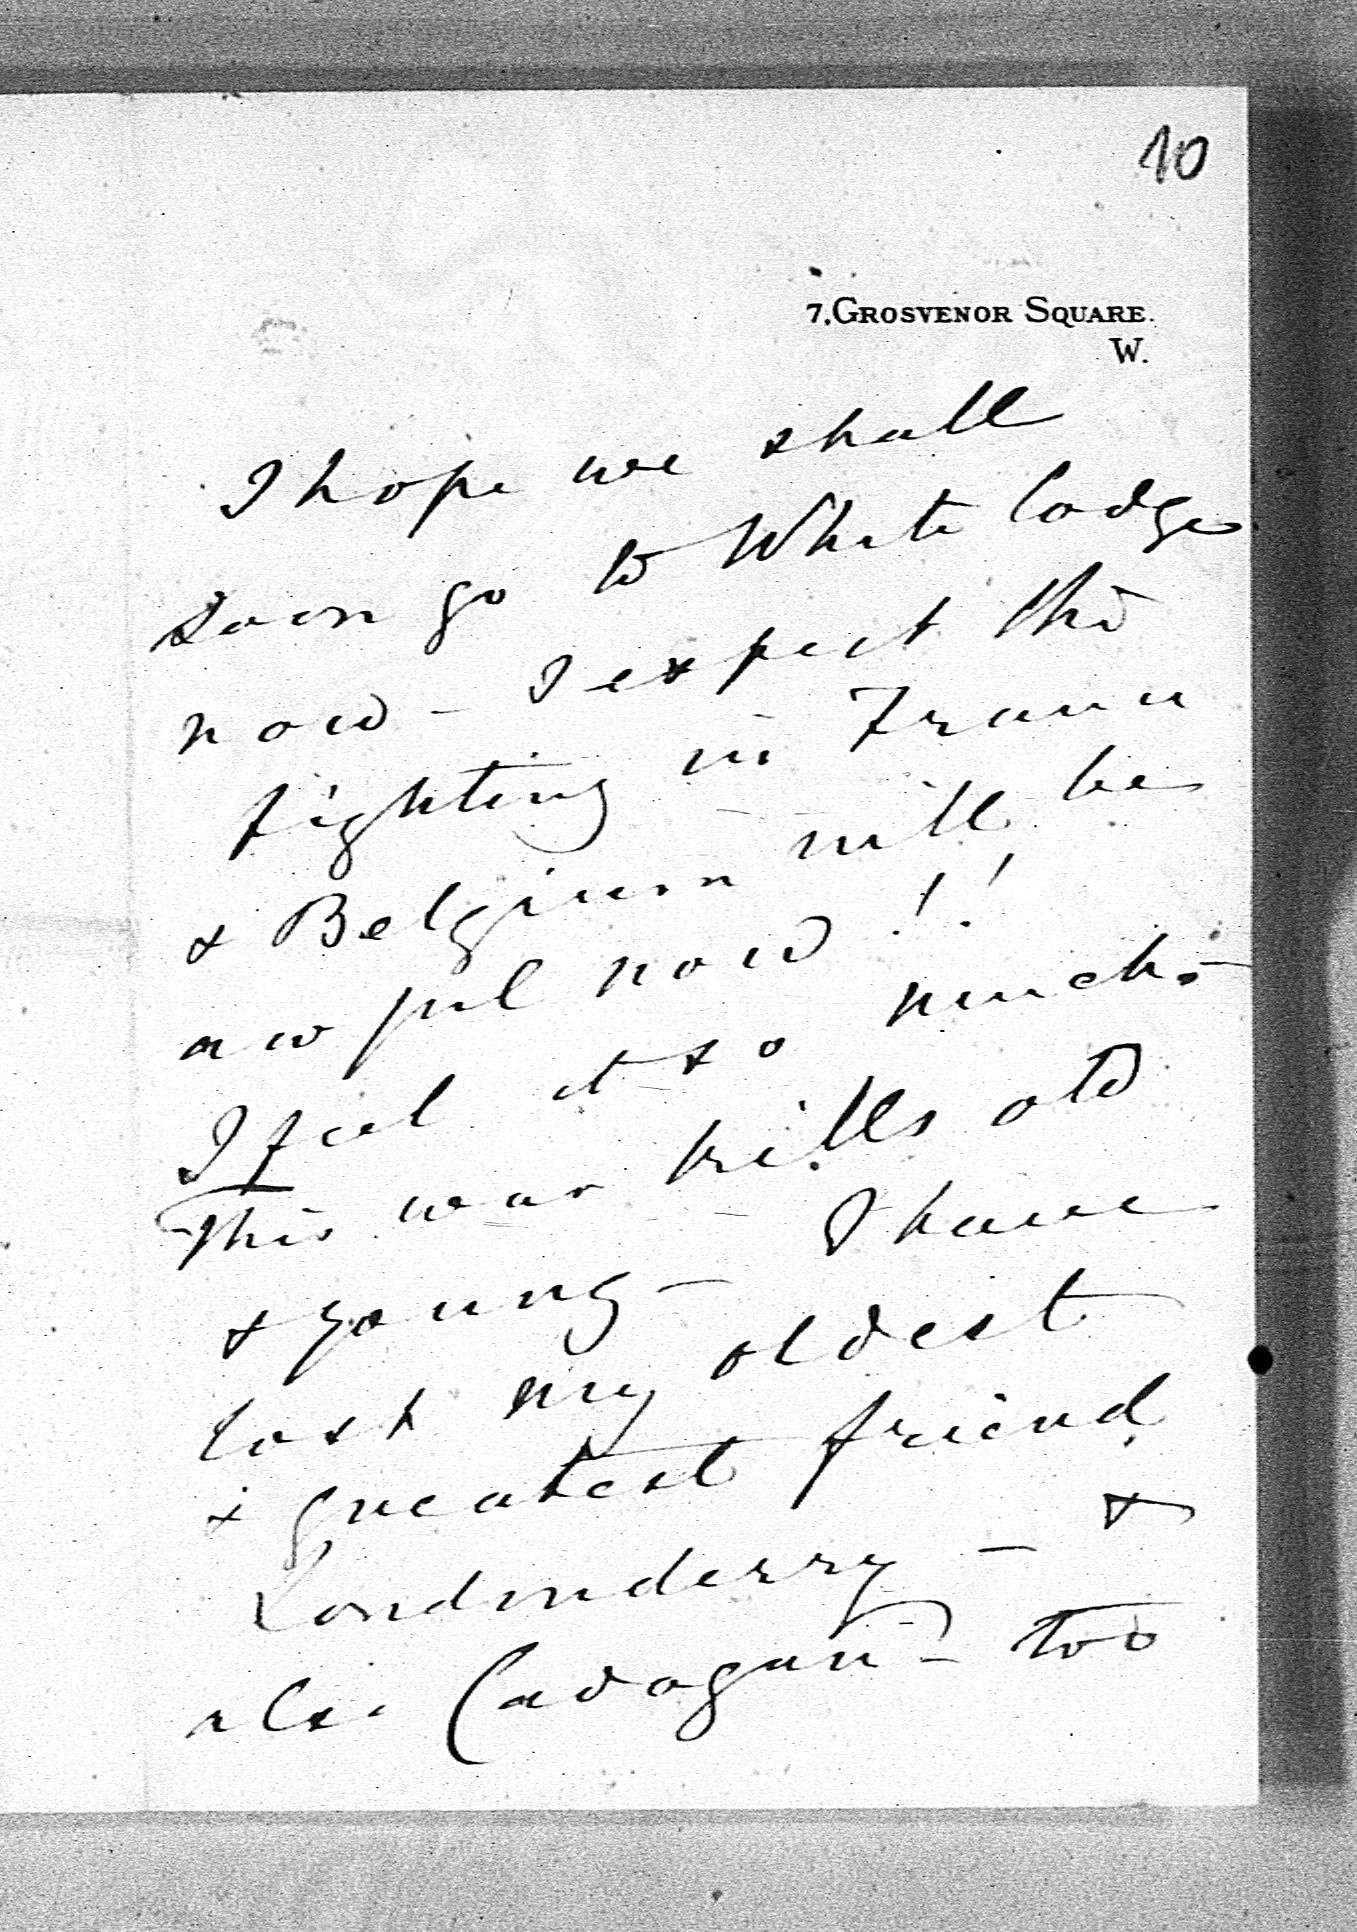 10
7, GROSVENOR SQUARE.
W.
I hope we shall
soon go to White Lodge
now - I expect the
fighting in France
& Belgium will be
awful now!!
I feel it so much -
This war kills old
& young - I have
lost my oldest
& greatest friend
Londonderry - &
also Cadogan - too